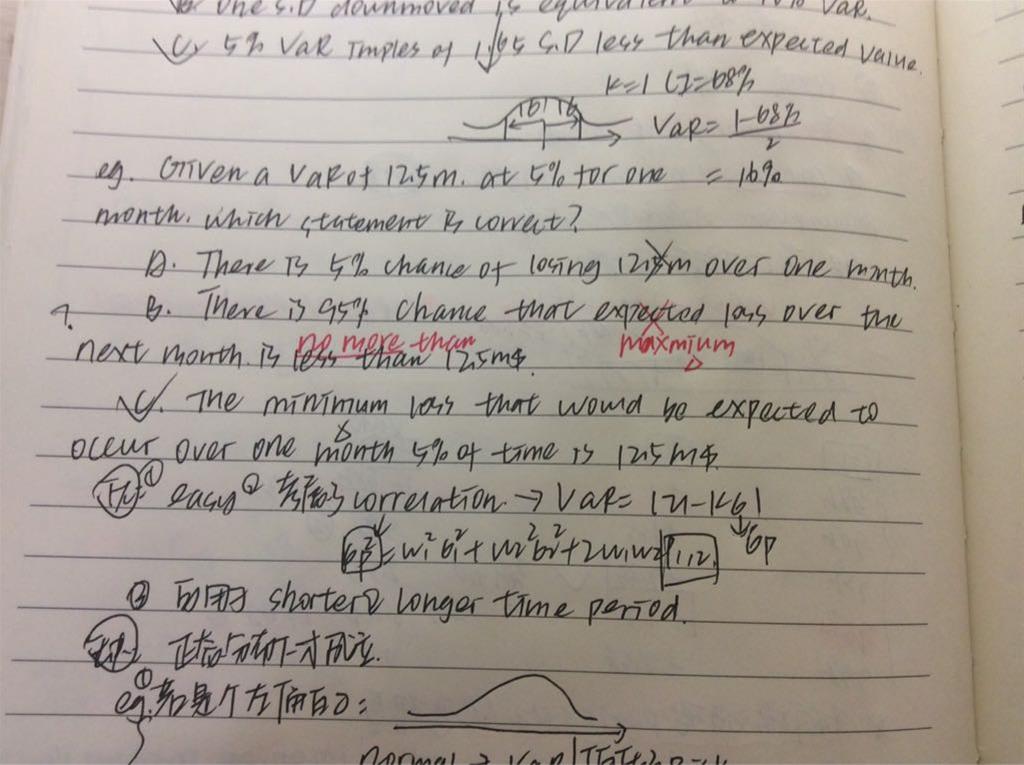 B. One S.D downmoved is equivalent a 16% VaR.
C. 5% VaR Imples of 1.65 S.D less than expected value.
K=1 CI=68%
VaR= 1-68% / 2
eg. Given a VaR of 12.5m. at 5% for one = 16%
month. which statement is correct?
A. There is 5% chance of losing 12.5m over one month.
? B. There is 95% chance that expected loss over the
no more than maxmium
next month is less than 12.5m$.
C. The minimum loss that would be expected to
occur over one month 5% of time is 12.5m$.
① easy ② 考虑了 correlation → VaR= |u-Kσ|
σp² = w₁²σ₁² + w₂²σ₂² + 2w₁w₂ 1,2 σp
③ 可用于 shorter or longer time period.
正态分布下才成立.
eg.① 若是个左偏的:
normal